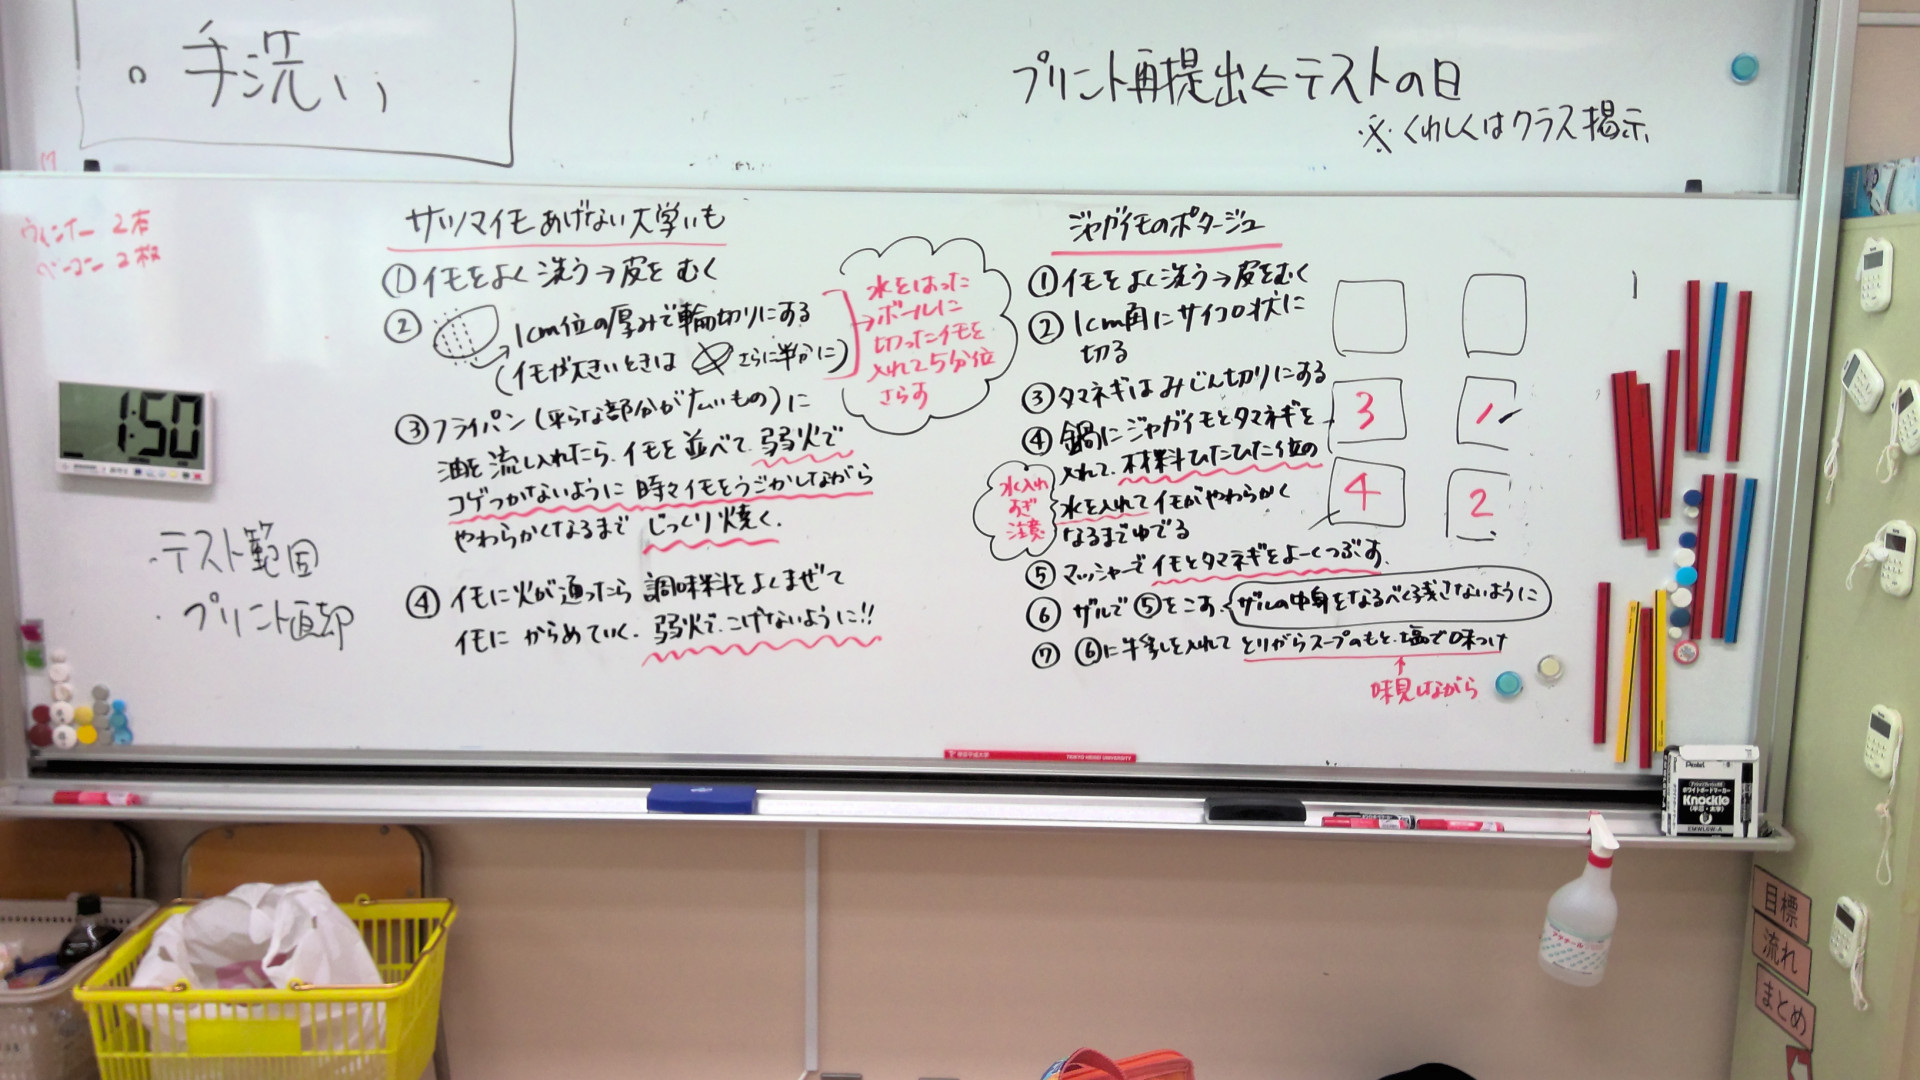 。手洗い
プリント再提出⇐テストの日
※くわしくはクラス掲示
ウィンナー 2本
ベーコン 2枚
1:50
・テスト範囲
・プリント返却
サツマイモあげない大学いも
①イモをよく洗う→皮をむく
②1cm位の厚みで輪切りにする
(イモが大きいときはさらに半分に)
水をはった
ボールに
切ったイモを
入れて5分位
さらす
③フライパン(平らな部分が広いもの)に
油を流し入れたら、イモを並べて、弱火で
コゲつかないように時々イモをうごかしながら
やわらかくなるまで じっくり焼く.
④イモに火が通ったら調味料をよくまぜて
イモにからめていく. 弱火で.こげないように!!
ジャガイモのポタージュ
①イモをよく洗う→皮をむく
②1cm角にサイコロ状に
切る
③タマネギはみじん切りにする
④鍋にジャガイモとタマネギを
入れて、材料ひたひた位の
水を入れてイモがやわらかく
なるまでゆでる
水入れ
すぎ
注意
⑤マッシャーでイモとタマネギをよーくつぶす.
⑥ザルで⑤をこす.ザルの中身をなるべく残さないように
⑦⑥に牛乳を入れてとりがらスープのもと、塩で味つけ
↑
味見しながら
3
1
4
2
TOKYO HEISEI UNIVERSITY
Pentel
ホワイトボードマーカー
Knockle
EMWL5W-A
目標
流れ
まとめ